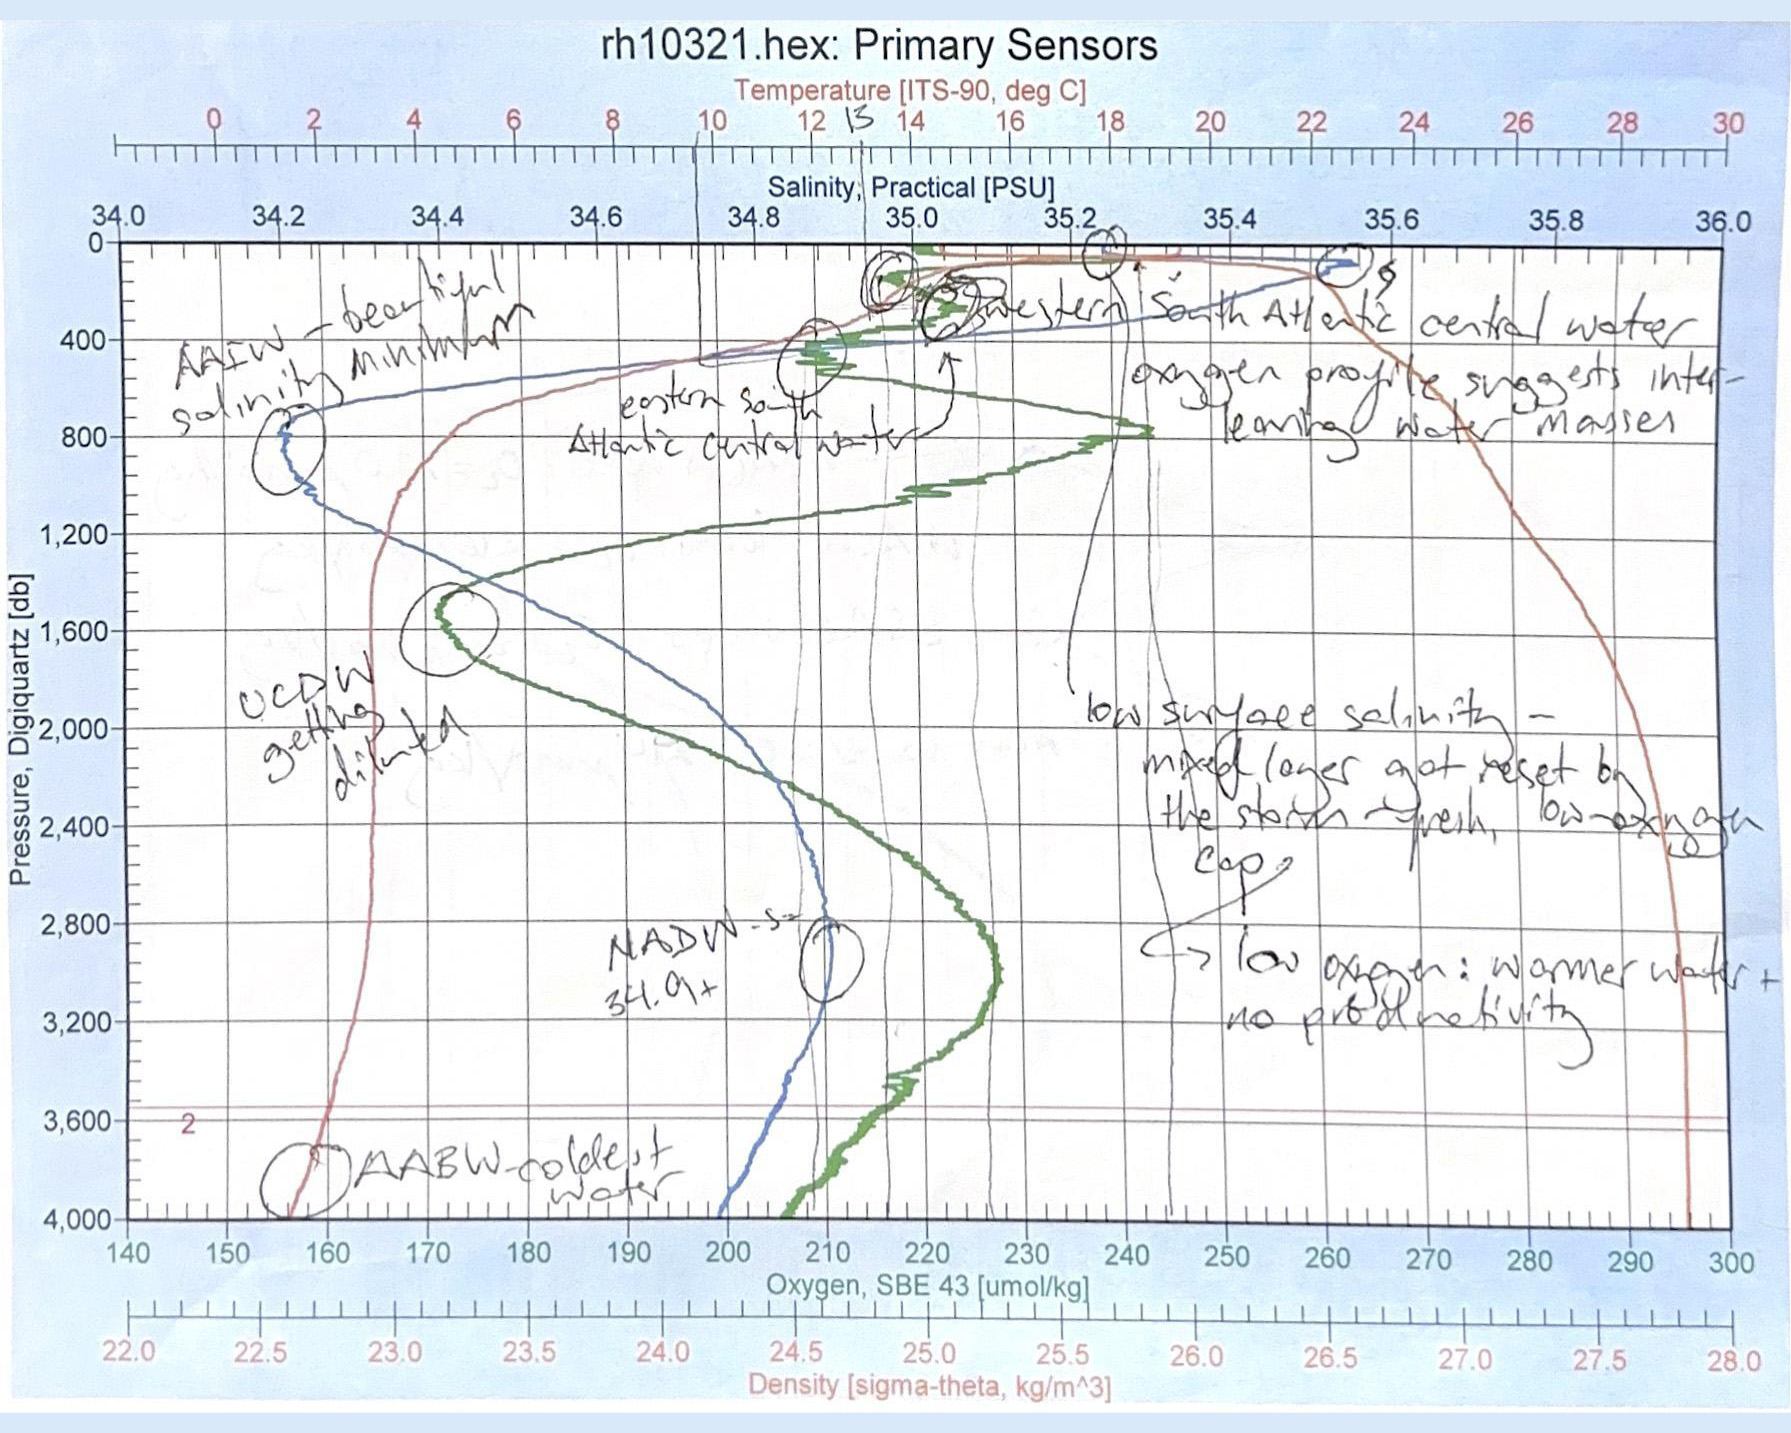 rh10321.hex: Primary Sensors
Temperature [ITS-90, deg C]
13
0 2 4 6 8 10 12 14 16 18 20 22 24 26 28 30
Salinity, Practical [PSU]
34.0 34.2 34.4 34.6 34.8 35.0 35.2 35.4 35.6 35.8 36.0
Pressure, Digiquartz [db]
0
400
800
1,200
1,600
2,000
2,400
2,800
3,200
3,600
4,000
AAIW - beautiful
salinity minimum
western South Atlantic central water
oxygen profile suggests inter-
leaving water masses
eastern south
Atlantic central water
UCDW
getting
diluted
low surface salinity -
mixed layer got reset by
the storm - fresh, low-oxygen
cap
low oxygen: warmer water +
no productivity
NADW - S=
34.9+
2
AABW - coldest
water
140 150 160 170 180 190 200 210 220 230 240 250 260 270 280 290 300
Oxygen, SBE 43 [umol/kg]
22.0 22.5 23.0 23.5 24.0 24.5 25.0 25.5 26.0 26.5 27.0 27.5 28.0
Density [sigma-theta, kg/m^3]